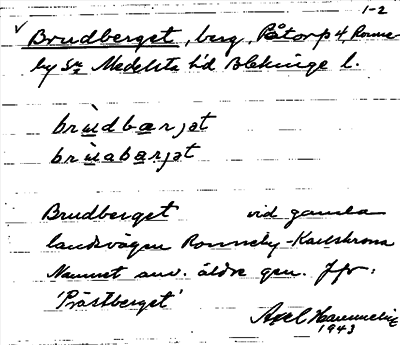 1-2
✓ Brudberget, berg, Påtorp 4, Ronne-
by Sn Medelsta hd Blekinge l.
brùdbærjət
brùabærjət
Brudberget vid gamla
landsvägen Ronneby-Karlskrona
Namnet anv. äldre gen. Jfr.
'Prästberget'
Axel
1943